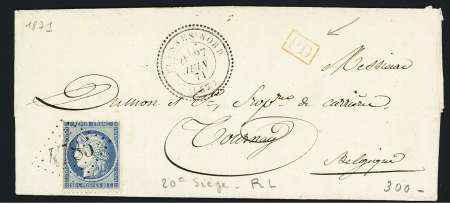 1871
27
JUIN
71
PD
Messieurs
Dumon et Cie Propres de carrière
Tournay
Belgique
REPUB. FRANC.
20c POSTES 20c
20c Siège - RL
300-